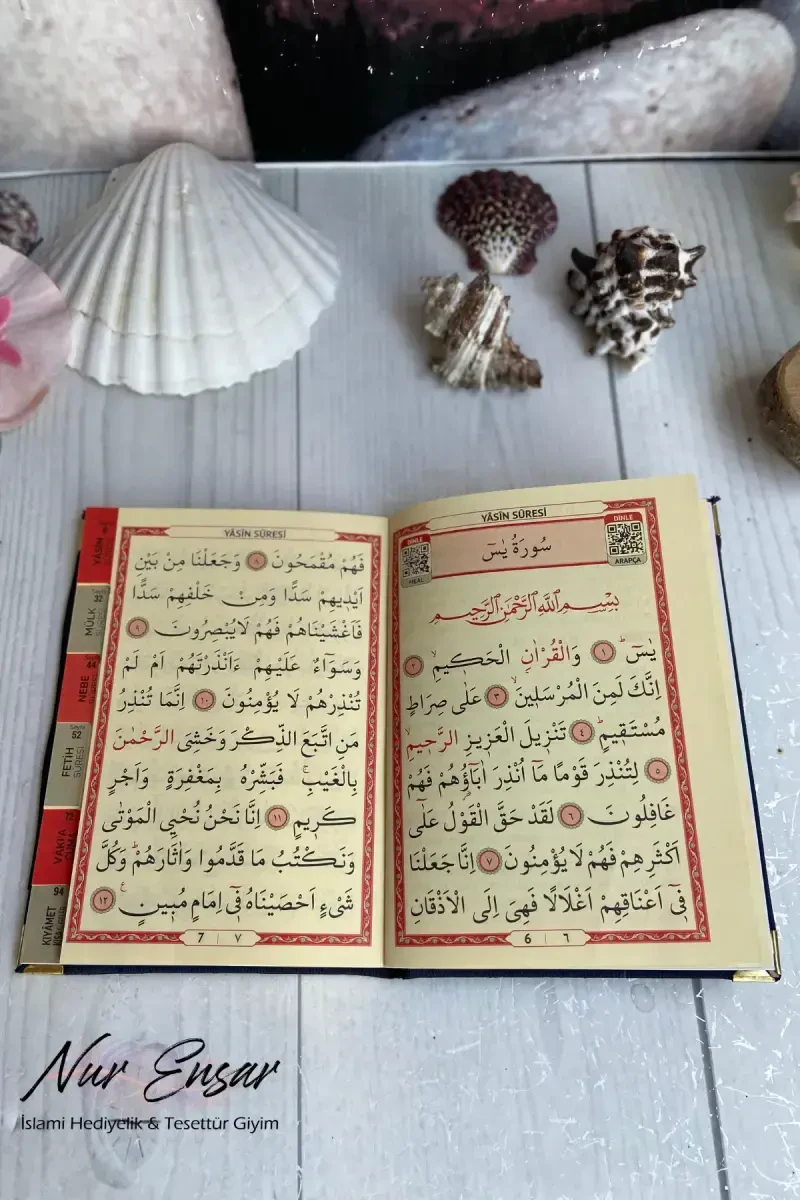 YÂSÎN SÛRESİ
DİNLE
MEAL
سُورَةُ يٰسٓ
DİNLE
ARAPÇA
بِسْمِ اللّٰهِ الرَّحْمٰنِ الرَّحِيمِ
يٰسٓ ۚ ﴿١﴾ وَالْقُرْاٰنِ الْحَك۪يمِۙ ﴿٢﴾
اِنَّكَ لَمِنَ الْمُرْسَل۪ينَۙ ﴿٣﴾ عَلٰى صِرَاطٍ
مُسْتَق۪يمٍۜ ﴿٤﴾ تَنْز۪يلَ الْعَز۪يزِ الرَّح۪يمِۙ
﴿٥﴾ لِتُنْذِرَ قَوْمًا مَٓا اُنْذِرَ اٰبَٓاؤُ۬هُمْ فَهُمْ
غَافِلُونَ ﴿٦﴾ لَقَدْ حَقَّ الْقَوْلُ عَلٰٓى
اَكْثَرِهِمْ فَهُمْ لَا يُؤْمِنُونَ ﴿٧﴾ اِنَّا جَعَلْنَا
ف۪ٓي اَعْنَاقِهِمْ اَغْلَالًا فَهِيَ اِلَى الْاَذْقَانِ
6 | ٦
YÂSÎN SÛRESİ
فَهُمْ مُقْمَحُونَ ﴿٨﴾ وَجَعَلْنَا مِنْ بَيْنِ
اَيْد۪يهِمْ سَدًّا وَمِنْ خَلْفِهِمْ سَدًّا
فَاَغْشَيْنَاهُمْ فَهُمْ لَا يُبْصِرُونَ ﴿٩﴾
وَسَوَٓاءٌ عَلَيْهِمْ ءَاَنْذَرْتَهُمْ اَمْ لَمْ
تُنْذِرْهُمْ لَا يُؤْمِنُونَ ﴿١٠﴾ اِنَّمَا تُنْذِرُ
مَنِ اتَّبَعَ الذِّكْرَ وَخَشِيَ الرَّحْمٰنَ
بِالْغَيْبِۚ فَبَشِّرْهُ بِمَغْفِرَةٍ وَاَجْرٍ
كَر۪يمٍ ﴿١١﴾ اِنَّا نَحْنُ نُحْيِ الْمَوْتٰى
وَنَكْتُبُ مَا قَدَّمُوا وَاٰثَارَهُمْۜ وَكُلَّ
شَيْءٍ اَحْصَيْنَاهُ ف۪ٓي اِمَامٍ مُب۪ينٍ۟ ﴿١٢﴾
7 | ٧
YÂSÎN
MÜLK
33
NEBE
44
FETİH
SÛRESİ
52
VAKIA
KIYÂMET
94
Nur Ensar
İslami Hediyelik & Tesettür Giyim